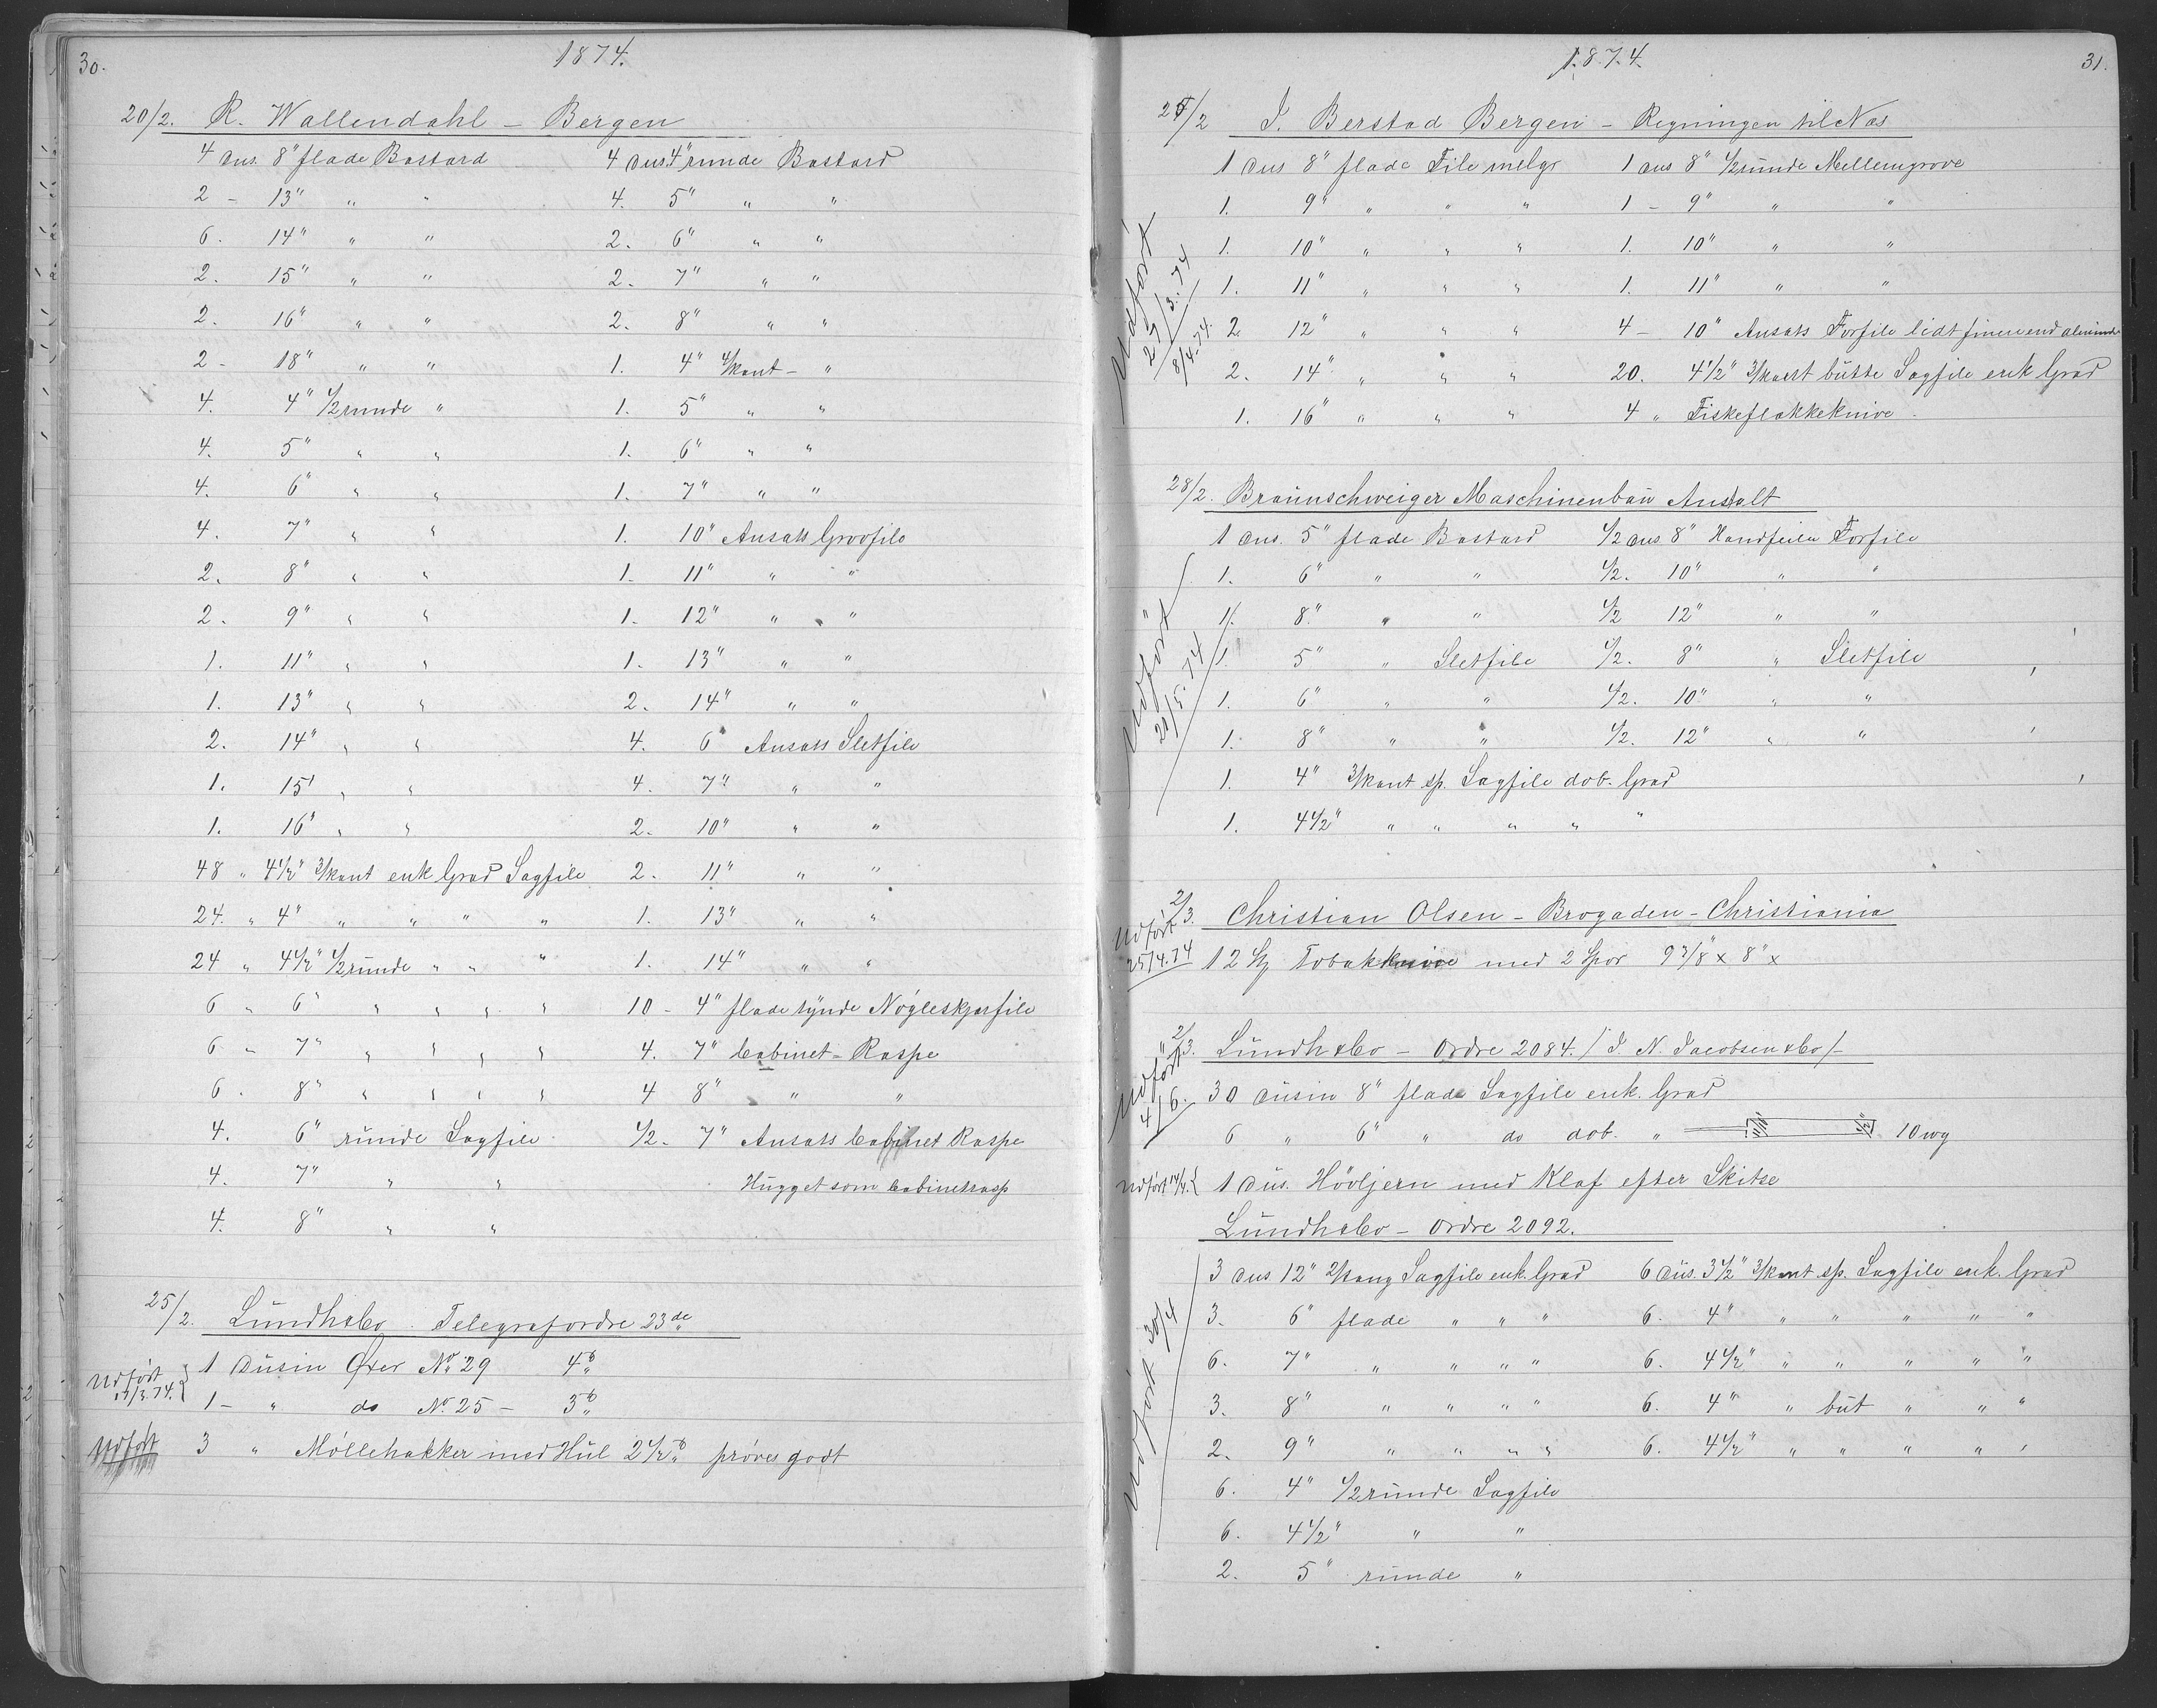 30.
1874.
20/2. R. Wallendahl – Bergen
4 Dus. 8" flade Bastard
2 – 13" " "
6. 14" " "
2. 15" " "
2. 16" " "
2 – 18" " "
4. 4" 1/2runde "
4. 5" " "
4. 6" " "
4. 7" " "
2. 8" " "
2. 9" " "
1. 11" " "
1. 13" " "
2. 14" " "
1. 15" " "
1. 16" " "
48 " 4 1/2" 3/kant enk Grad Sagfile
24. " 4" " " " "
24 " 4 1/2" 1/2runde " " "
6 " 6" " " " "
6 " 7" " " " "
6. 8" " " " "
4. 6" runde Sagfile
4. 7" " "
4. 8" " "
4 Dus. 4" runde Bastard
4. 5" " "
2. 6" " "
2. 7" " "
2. 8" " "
1. 4" 4/kant – "
1. 5" " "
1. 6" " "
1. 7" " "
1. 10" Ansats Grovfile
1. 11" " "
1. 12" " "
1. 13" " "
2. 14" " "
4. 6" Ansats Sletfile
4. 7" " "
2. 10" " "
2. 11" " "
1. 13" " "
1. 14" " "
10 – 4" flade tynde Nøgleskjærfile
4. 7" Cabinet-Raspe
4 8" " "
1/2 – 7" Ansats Cabinet Raspe
Hugget som Cabinetrasp
25/2. Lundh & Co. Telegrafordre 23de
Udført 17/3.74. } 1 Dusin Øxer No. 29 4 lb
1 – " do No. 25 – 3 lb
Udført 3 " Møllehakker med Hul 2 1/2 lb prøves godt
1874.
31.
25/2 J. Berstad Bergen – Regningen til Næs
Udført 27/3.74 8/4.74.
1 Dus 8" flade File melgr
1. 9" " " "
1. 10" " " "
1. 11" " " "
2 12" " " "
2. 14" " " "
1. 16" " " "
1 Dus 8" 1/2runde Mellemgrove
1 – 9" " "
1. 10" " "
1. 11" " "
4 – 10" Ansats Forfile lidt finere end almind
20. 4 1/2" 3/kant butte Sagfile enk Grad
4 " Fiskeflækkeknive.
28/2. Braunschweiger Maschinenbau Anstalt
Udført 21/5.74
1 Dus. 5" flade Bastard
1. 6" " "
1. 8" " "
1 5" " Sletfile
1. 6" " "
1. 8" " "
1. 4" 3/kant sp. Sagfile dob. Grad
1. 4 1/2" " " " " "
1/2 Dus 8" Handfeilen Forfile
1/2. 10" " "
1/2 12" " "
1/2. 8" " Sletfile
1/2. 10" " "
1/2. 12" " "
2/3. Christian Olsen – Brogaden – Christiania
Udført 25/4.74
12 St Tobakknive med 2 Spor 9 3/8" x 8" x
2/3. Lundh & Co – Ordre 2084. / J. N. Jacobsen & Co /–
Udført 4/6.
30 Dusin 8" flade Sagfile enk. Grad
6 " 6" " do dob. " 10 wg
Udført 14/4. { 1 Dus. Hövljern med Klaf efter Skitse
Lundh & Co – Ordre 2092.
Udført 30/4
3 Dus 12" 2/kang Sagfile enk. Grad
3. 6" flade " " "
6. 7" " " " "
3. 8" " " " "
2. 9" " " " "
6. 4" 1/2runde Sagfile
6. 4 1/2" " "
2. 5" runde "
6 Dus. 3 1/2" 3/kant sp. Sagfile enk. Grad
6. 4" " " " " "
6. 4 1/2" " " " " "
6. 4" " but " " "
6. 4 1/2" " " " " "